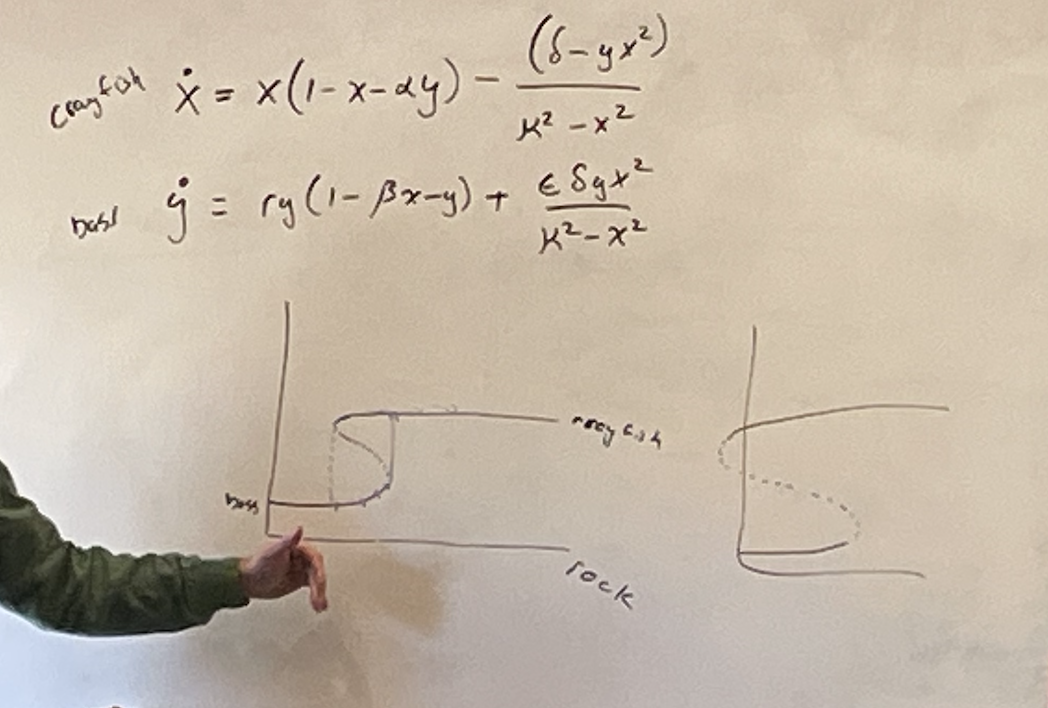 crayfish ẋ = x(1-x-αy) - (δ-yx²) / (κ²-x²)
bass ẏ = ry(1-βx-y) + ϵδyx² / (κ²-x²)
crayfish
bass
rock